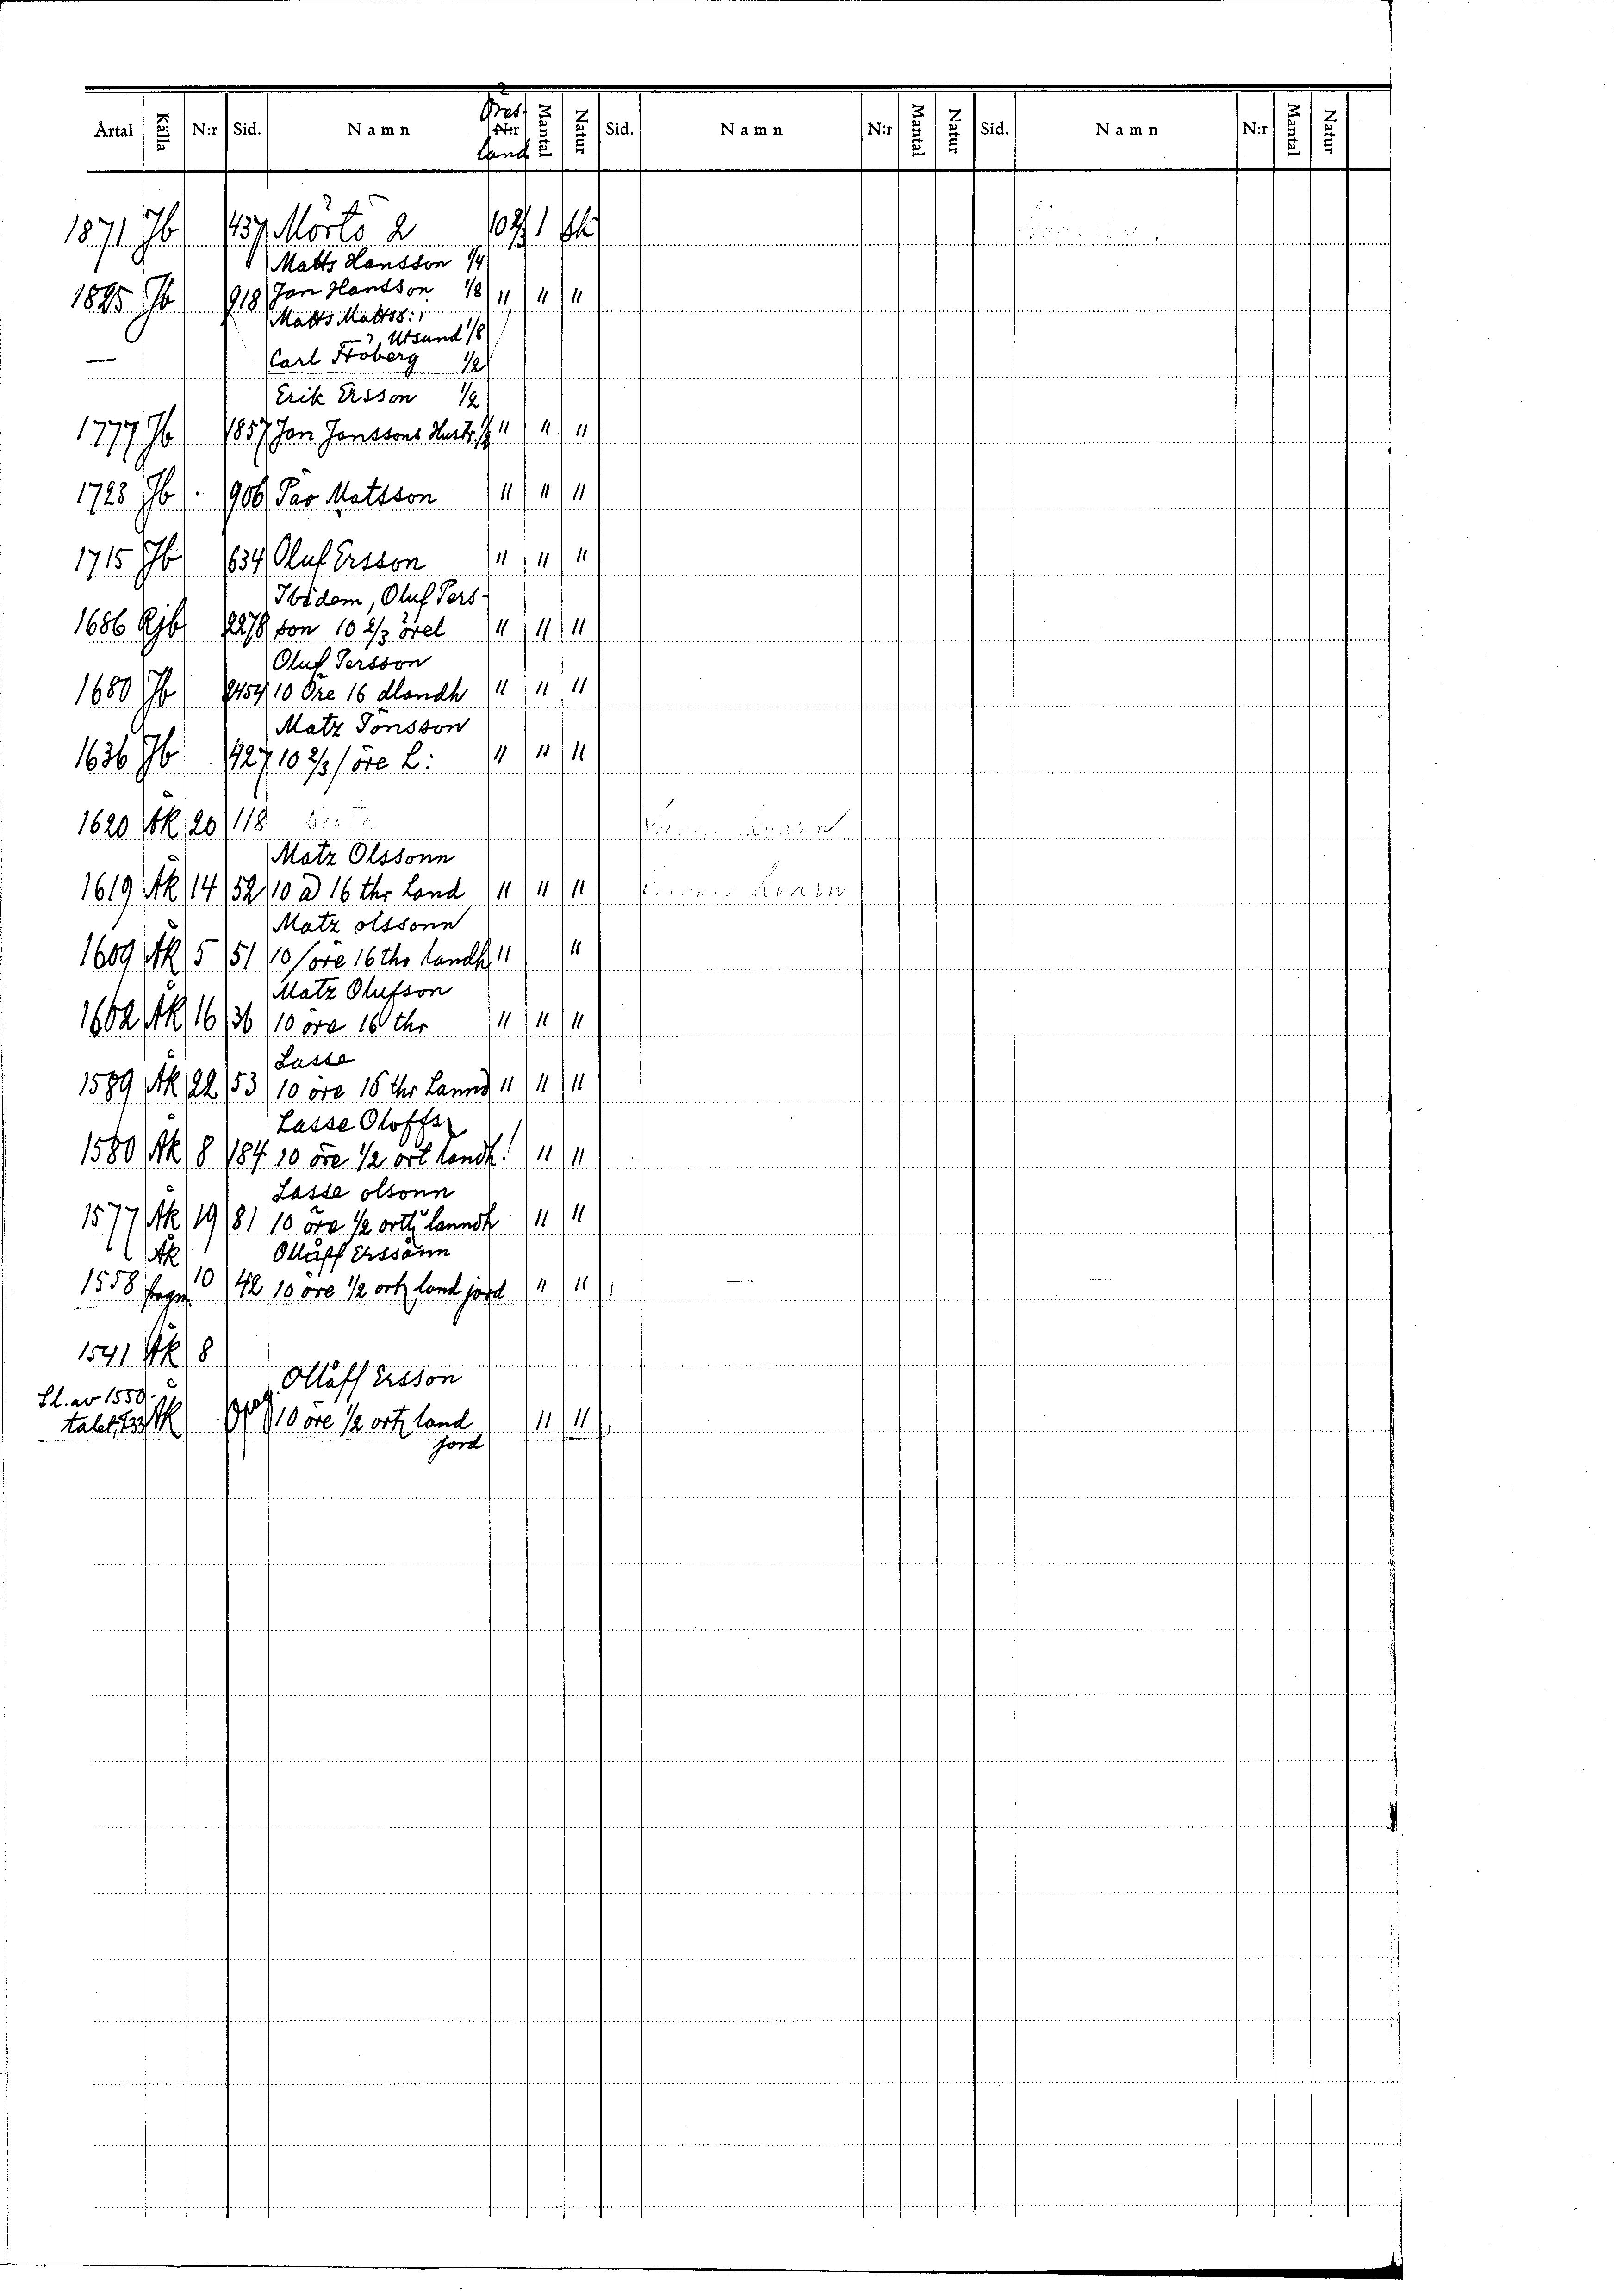 Årtal Källa N:r Sid. Namn Öres N:r land Mantal Natur Sid. Namn N:r Mantal Natur Sid. Namn N:r Mantal Natur
1871 Jb 437 Mörtö 2 10 2/3 1 Sk
Matts Hansson 1/4
1825 Jb 918 Jan Hansson 1/8 " " "
Matts Matss:
i Utsund 1/8
— Carl Fröberg 1/2
Erik Ersson 1/2
1777 Jb 1857 Jan Janssons Hustr. 1/2 " " "
1723 Jb 906 Pär Matsson " " "
1715 Jb 634 Oluf Ersson " " "
Ibidem, Oluf Pers-
1686 Rjb 2278 son 10 2/3 örel " " "
Oluf Persson
1680 Jb 2454 10 Öre 16 dlandh " " "
Matz Jönsson
1636 Jb 427 10 2/3 / öre L: " " "
1620 Åk 20 118
Matz Olssonn
1619 Åk 14 52 10 a 16 thr Land " " "
Matz olssonn
1609 Åk 5 51 10 / öre 16 thr landh " "
Matz Olufson
1602 Åk 16 36 10 öre 16 thr " " "
Lasse
1589 Åk 22 53 10 öre 16 thr Lannd " " "
Lasse Oloffs
1580 Åk 8 184 10 öre 1/2 ort landh! " "
Lasse olsonn
1577 Åk 19 81 10 öre 1/2 orth lanndh " "
Åk Olluff Erssånn
1558 10 42 10 öre 1/2 ortz land jord " "
1541 Åk 8
Ollåff Ersson
Sl. av 1550-
talet, 133 Åk 10 öre 1/2 ortz land " "
jord